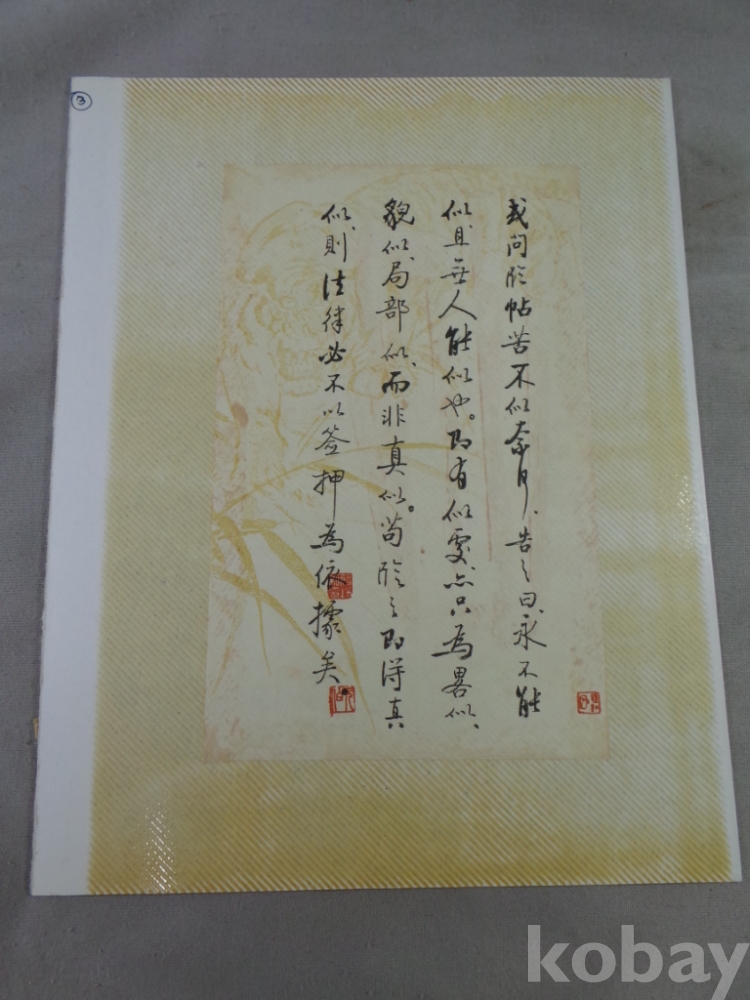 ③
或问临帖苦不似奈何、告之曰、永不能
似、且無人能似也。即有似處、亦只為畧似、
貌似、局部似、而非真似。苟臨之即得真
似、則法律必不以签押為依據矣。
kobay